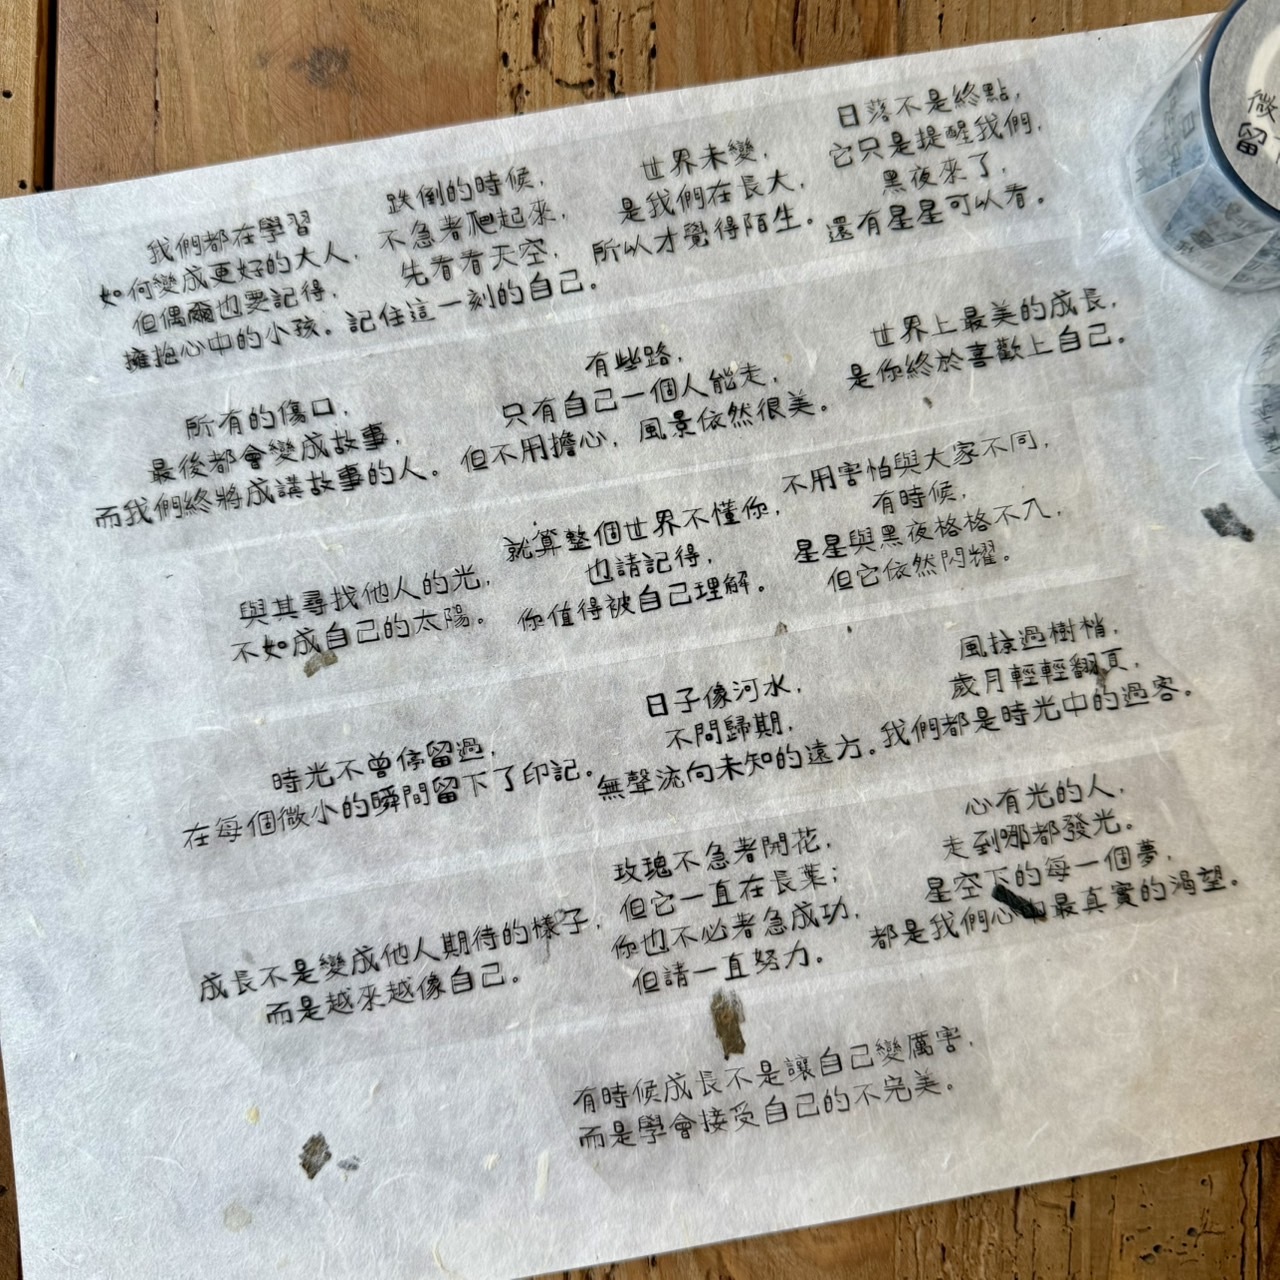 我們都在學習
如何變成更好的大人，
但偶爾也要記得，
擁抱心中的小孩。
跌倒的時候，
不急著爬起來，
先看看天空，
記住這一刻的自己。
世界未變，
是我們在長大，
所以才覺得陌生。
日落不是終點，
它只是提醒我們，
黑夜來了，
還有星星可以看。
所有的傷口，
最後都會變成故事，
而我們終將成講故事的人。
有些路，
只有自己一個人能走，
但不用擔心，風景依然很美。
世界上最美的成長，
是你終於喜歡上自己。
與其尋找他人的光，
不如成自己的太陽。
就算整個世界不懂你，
也請記得，
你值得被自己理解。
不用害怕與大家不同，
有時候，
星星與黑夜格格不入，
但它依然閃耀。
時光不曾停留過，
在每個微小的瞬間留下了印記。
日子像河水，
不問歸期，
無聲流向未知的遠方。
風掠過樹梢，
歲月輕輕翻頁，
我們都是時光中的過客。
成長不是變成他人期待的樣子，
而是越來越像自己。
玫瑰不急著開花，
但它一直在長葉；
你也不必著急成功，
但請一直努力。
心有光的人，
走到哪都發光。
星空下的每一個夢，
都是我們心中最真實的渴望。
有時候成長不是讓自己變厲害，
而是學會接受自己的不完美。
微
留